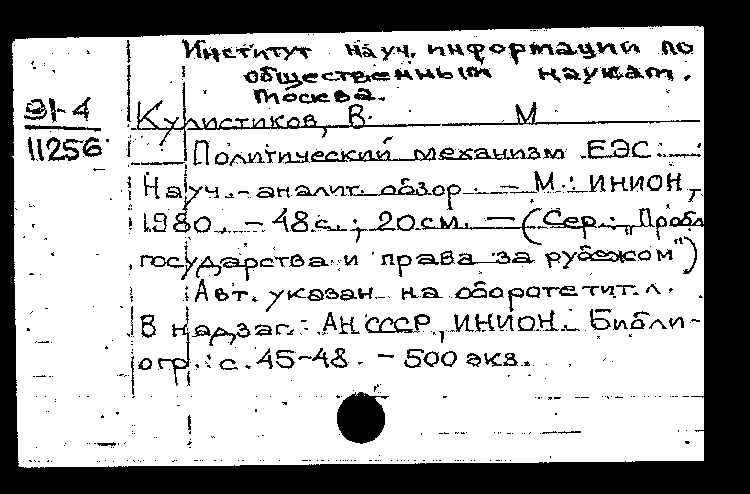 Институт науч. информации по
общественным наукам.
Москва.
91-4
11256
Кулистиков, В. М
Политический механизм ЕЭС:
Науч.-аналит. обзор. – М.: ИНИОН,
1980. – 48 с.; 20 см. – (Сер.: „Пробл
государства и права за рубежом")
Авт. указан на обороте тит. л.
В надзаг.: АН СССР, ИНИОН. Библи-
огр.: с. 45-48. – 500 экз.